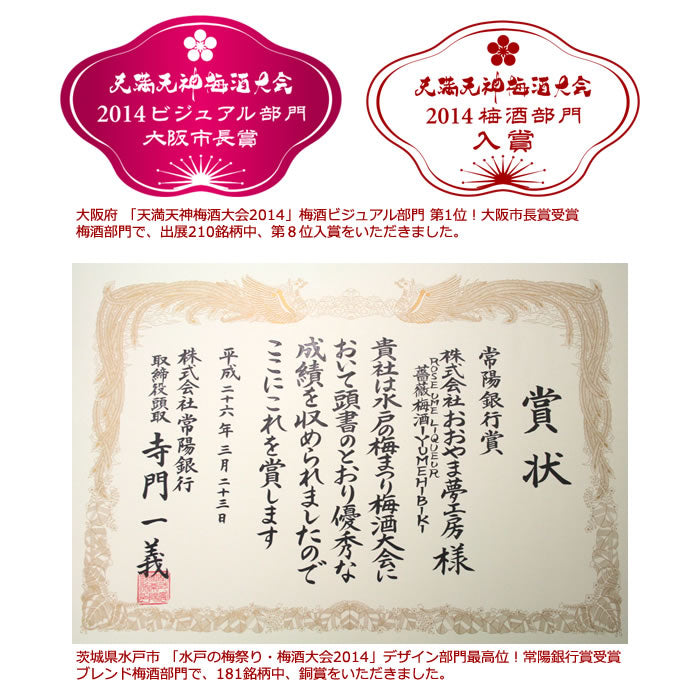 天満天神梅酒大会
2014ビジュアル部門
大阪市長賞
天満天神梅酒大会
2014梅酒部門
入賞
大阪府 「天満天神梅酒大会2014」梅酒ビジュアル部門 第1位！大阪市長賞受賞
梅酒部門で、出展210銘柄中、第８位入賞をいただきました。
賞状
常陽銀行賞
株式会社おおやま夢工房 様
ROSE UME LIQUEUR
薔薇梅酒-YUMEHIBIKI
貴社は水戸の梅まつり梅酒大会に
おいて頭書のとおり優秀な
成績を収められましたので
ここにこれを賞します
平成二十六年 三月 二十三日
株式会社常陽銀行
取締役頭取 寺門一義
茨城県水戸市 「水戸の梅祭り・梅酒大会2014」デザイン部門最高位！常陽銀行賞受賞
ブレンド梅酒部門で、181銘柄中、銅賞をいただきました。